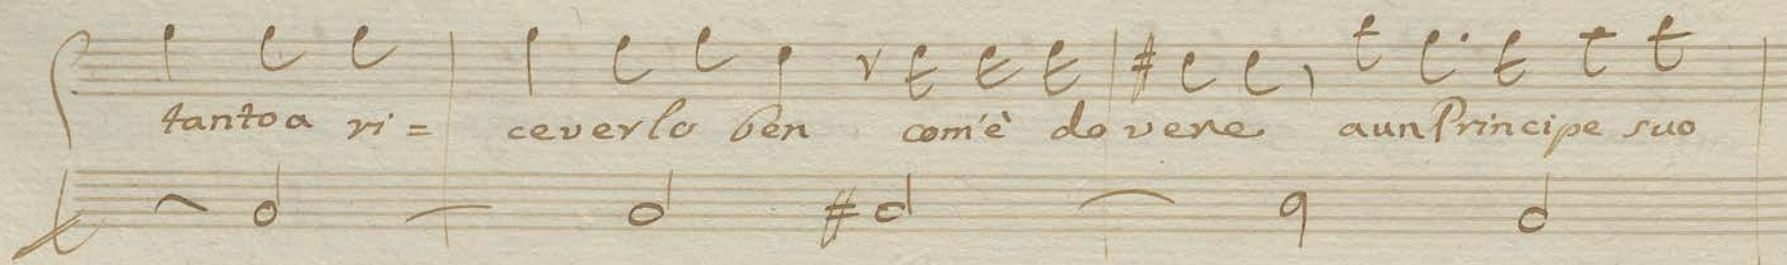 tanto a ri= ceverlo ben com'è dovere a un Principe suo